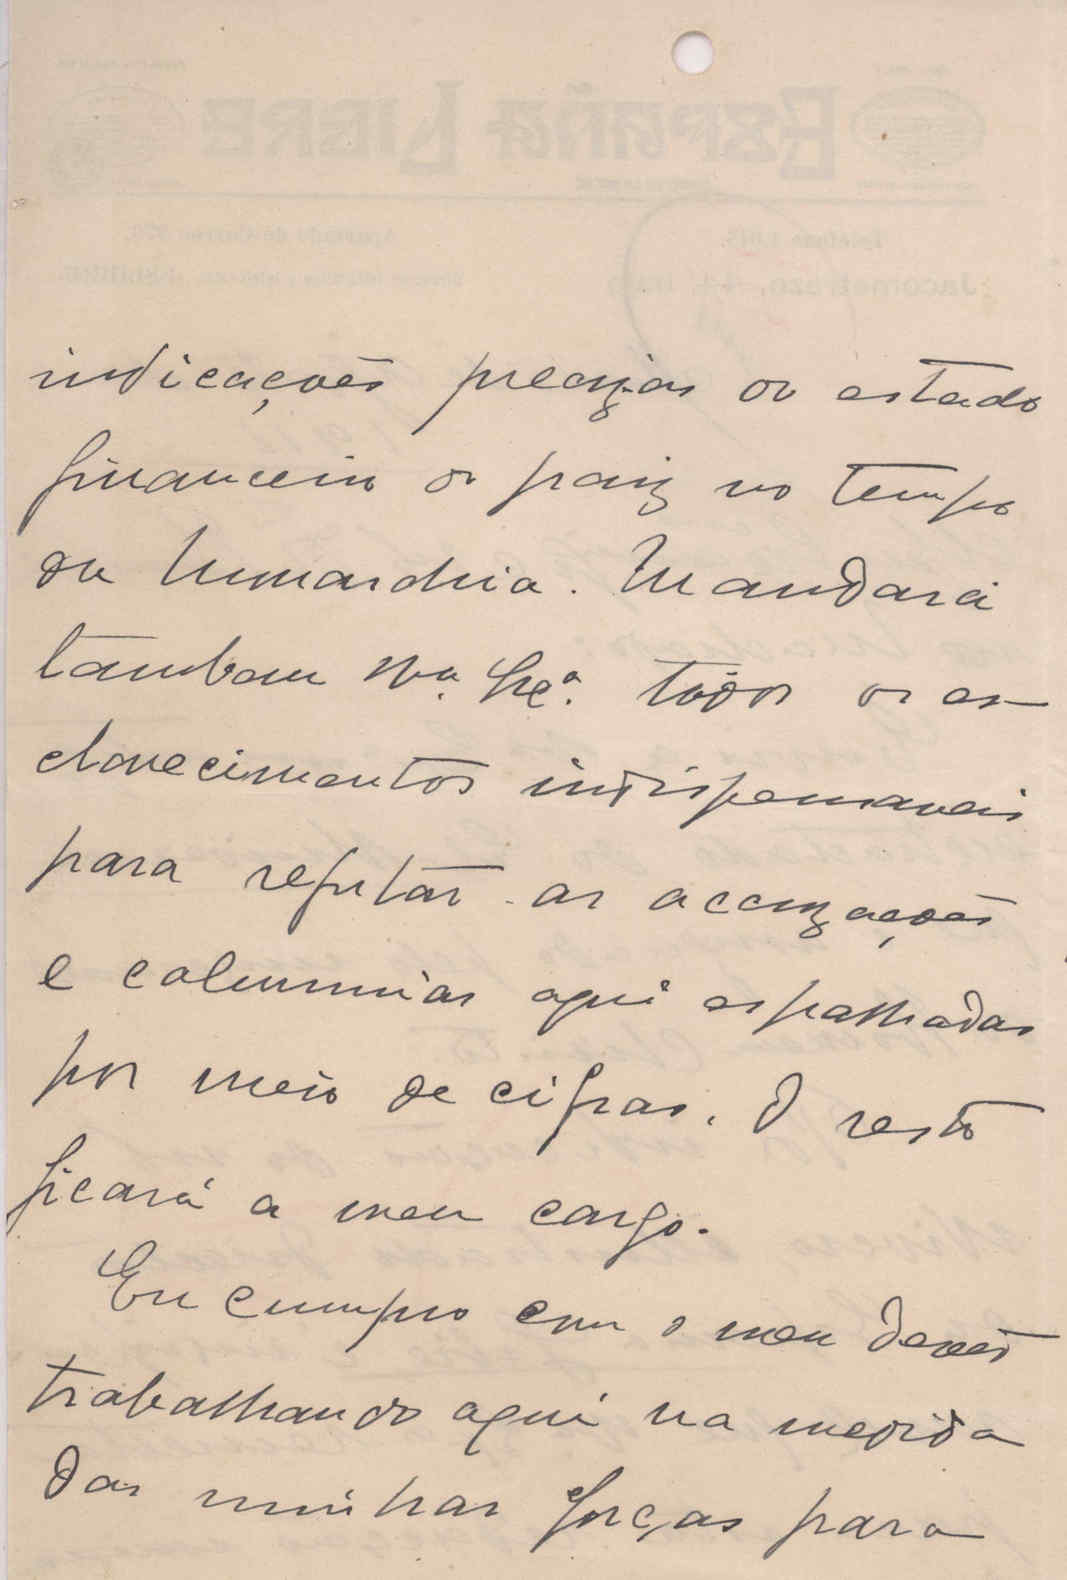 España Libre
Teléfono
Apartado de Correos
Jacometrezo,
indicações precizas do estado
financeiro do paiz no tempo
da Monarchia. Mandará
tambem V.ª Ex.ª todos os es-
clarecimentos indispensaveis
para refutar as accuzações
e calumnias aqui espalhadas
por meio de cifras. O resto
ficará a meu cargo.
Eu cumpro com o meu dever
trabalhando aqui na medida
das minhas forças para